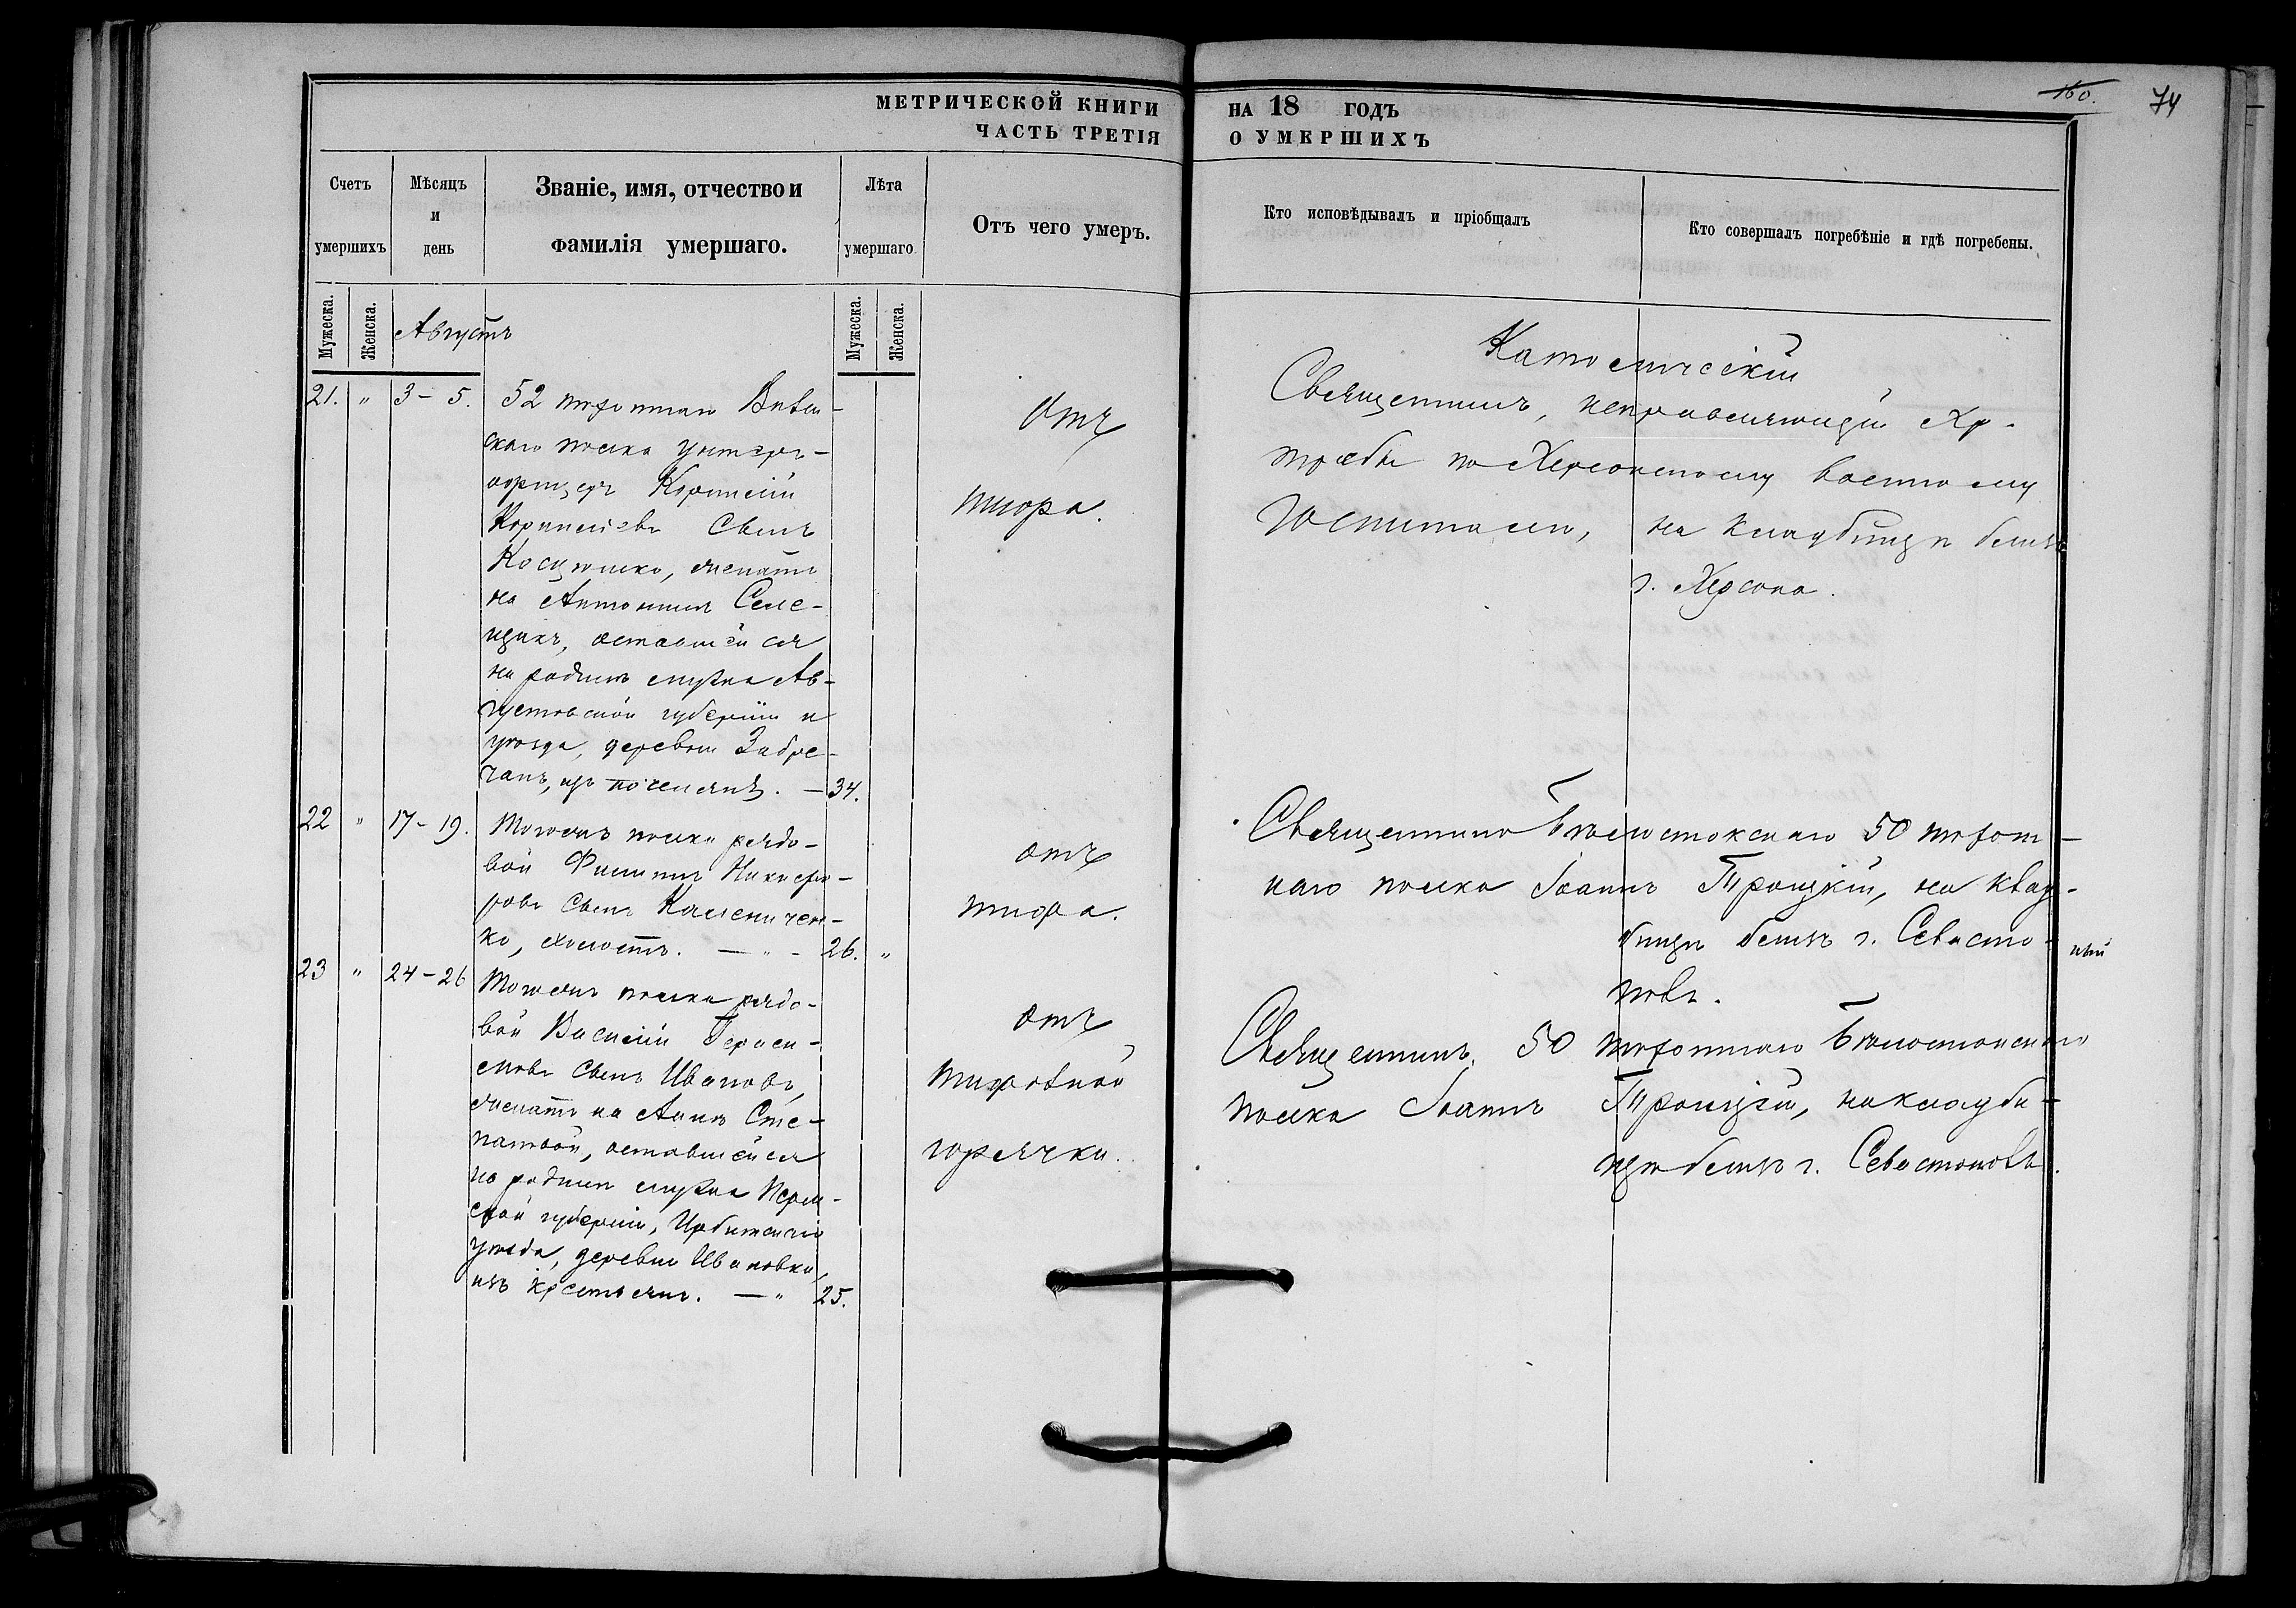 160.
74
МЕТРИЧЕСКОЙ КНИГИ НА 18 ГОДЪ
ЧАСТЬ ТРЕТІЯ О УМЕРШИХЪ
Счетъ умершихъ
Мѣсяцъ и день
Званіе, имя, отчество и фамилія умершаго.
Лѣта умершаго
Отъ чего умеръ.
Кто исповѣдывалъ и пріобщалъ
Кто совершалъ погребѣніе и гдѣ погребены.
Мужеска.
Женска.
Мужеска.
Женска.
Августъ
21. " 3-5.
52 пѣхотнаго Вилен-
скаго полка унтеръ-
офицеръ Корнилій
Корниліевъ сынъ
женатъ
на Антонинѣ
оставшейся
на родинѣ Ав-
густовской губерніи и
уѣзда, деревни Забре-
изъ 34.
Отъ
тифа.
Католическій
Священникъ, исправляющій
требы по Херсонскому военному
госпиталю, на кладбищѣ близъ
г. Херсона.
22 " 17-19.
Тогоже полка рядо-
вой Филиппъ Никифо-
ровъ сынъ Калениченко-
ко, холостъ. — " - 26. "
отъ
тифа.
Священникъ Бѣлостокскаго 50 пѣхот-
наго полка Іоаннъ Троицкій, на клад-
бищѣ близъ г. Севасто-
поля.
23 " 24-26
Тогоже полка рядо-
вой Василій Гераси-
мовъ сынъ Ивановъ,
женатъ на Аннѣ Сте-
пановой, оставшейся
на родинѣ Перм-
ской губерніи, Ирбитскаго
уѣзда, деревни Ивановки,
изъ крестьянъ. — " 25.
отъ
тифозной
горячки.
Священникъ 50 пѣхотнаго Бѣлостокскаго
полка Іоаннъ Троицкій, на кладби-
щѣ близъ г. Севастополя.